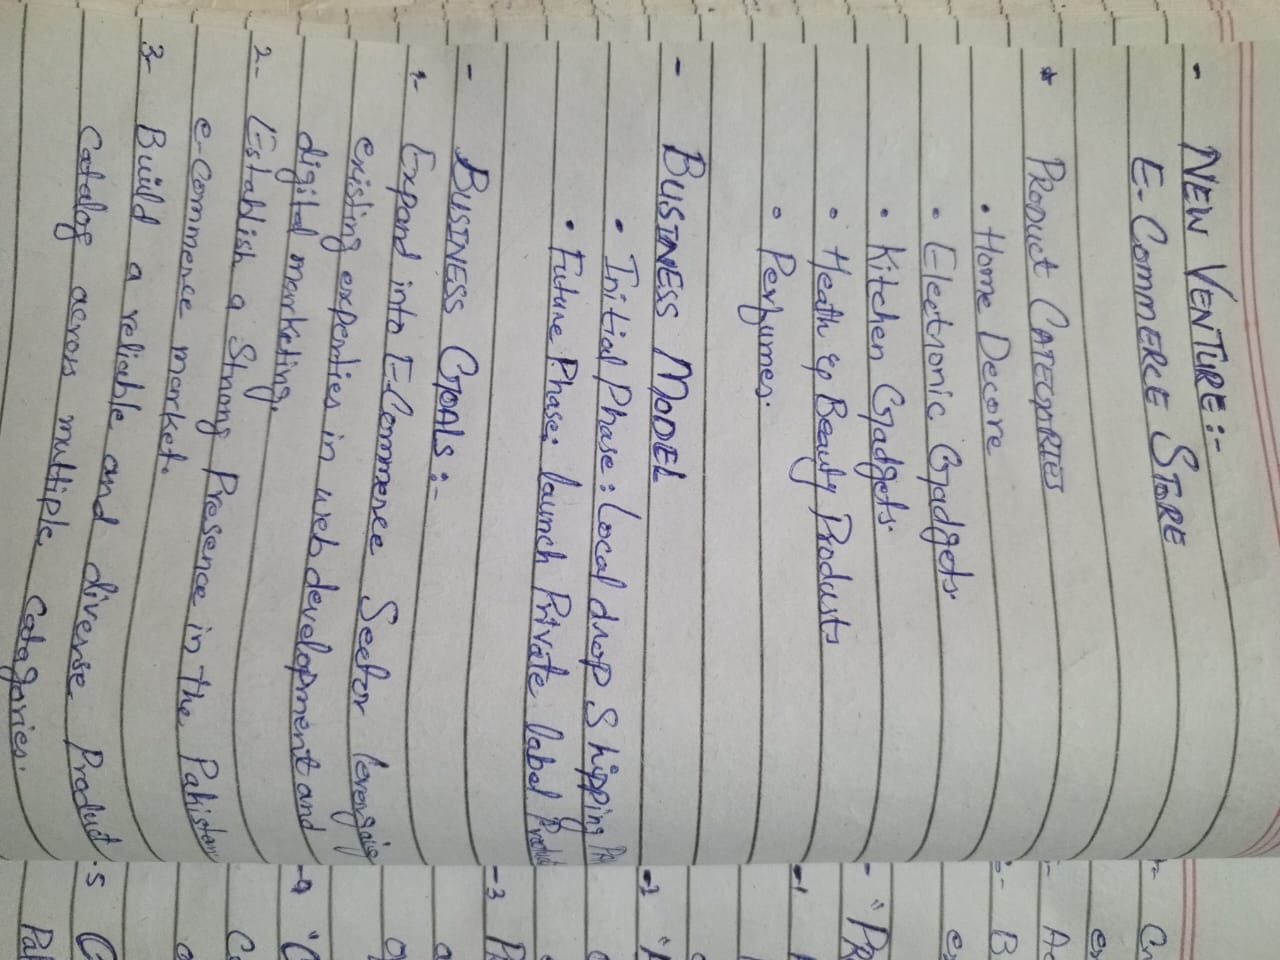 - NEW VENTURE:-
E-COMMERCE STORE
* PRODUCT CATEGORIES
• Home Decore
• Electronic Gadgets.
• Kitchen Gadgets.
• Heath & Beauty Products
• Perfumes.
- BUSINESS MODEL
• Initial Phase: Local drop Shipping
• Future Phase: launch Private label
- BUSINESS GOALS:-
1- Expand into E-Commerce Sector
existing experties in web development and
digital marketing.
2- Establish a Strong Presence in the Pakistan
e-commerce market.
3- Build a reliable and diverse Product
Catalog across multiple Catagories.